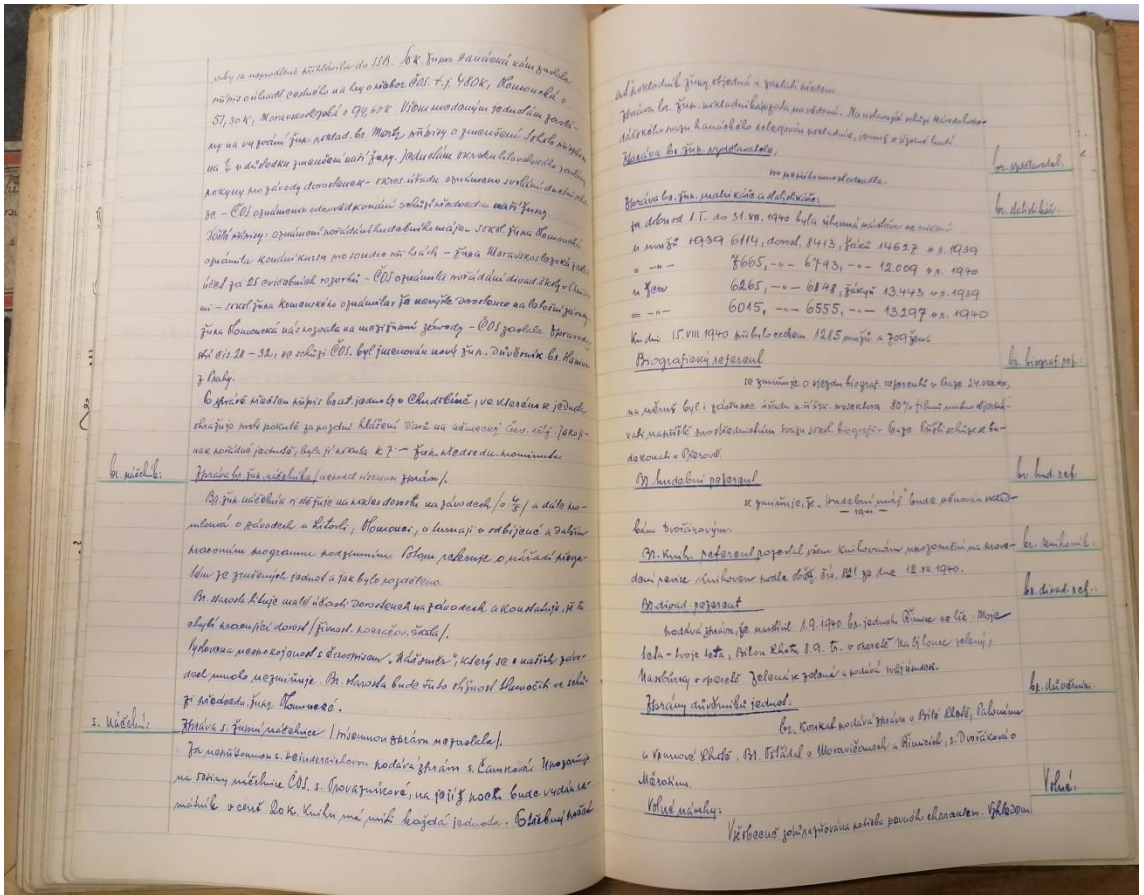 aby se neprodleně přihlásila do SSB. Sok. župa Hanácká nám zaslala
přípis o úhradě cestného na hry o přebor ČOS. t. j. 480K, Olomoucká o
51,30K, Moravskoslezská o 99,60K. Všem uvedeným jednotám
na vyzvání žup. poklad. br. přípisy o zmenšení
na ½ v důsledku zmenšení naší župy. Jednotám okrsku litovelského zaslány
pokyny pro závody dorostenek - okres. úřadu oznámeno svolání dnešní schů-
ze - ČOS oznámena odpověď konání schůzí předsednictva naší župy
Došlé přípisy: oznámení pořádání hudebního máje - sokol. župa Olomoucká
oznámila konání kursu pro soudce při hrách - župa Moravskoslezská
účet za 25 cvičebních rozvrhů - ČOS oznámila pořádání divad. školy v
- sokol. župa Komenského oznámila, že nevyšle dorostence na letošní závody
župa Olomoucká nás pozvala na mezižupní závody - ČOS zaslala Zpravodaj
čís. 28 - 32, ve schůzi ČOS. byl jmenován nový žup. důvěrník br.
z Prahy.
K zprávě přečten přípis brat. jednoty v Chudobíně, ve kterém se jednota
ohražuje proti pokutě za pozdní hlášení darů na německý Červ. kříž. Jakoži-
nak pořádné jednotě, byla jí pokuta K 7.- žup. předsedn. prominuta
br. náčelník: Zpráva br. žup. náčelníka /nepodal písemnou zprávu/.
Br. žup. náčelník si stěžuje na pokles dorostu na závodech / o ¼ / a dále pro-
mlouvá o závodech v Litovli, Olomouci, o turnaji v odbíjené a dalším
pracovním programu podzimním. Potom referuje o nářadí převza-
tém ze zrušených jednot a jak bylo rozděleno.
Br. starosta lituje malé účasti dorostenek na závodech a konstatuje, že tu
chybí pracující dorost /živnost. pokračov. škola/.
Vyslovena nespokojenost s časopisem "Náš směr", který se o našich závo-
dech mnoho nezmiňuje. Br. starosta bude tuto stížnost tlumočiti ve schů-
zi předsedn. župy Olomoucké.
s. Náčelní: Zpráva s. župní náčelnice /písemnou zprávu nezaslala/.
Za nepřítomnou s. podává zprávu s. Čamková. Upozorňuje
na 50tiny náčelnice ČOS. s. Provazníkové, na její ž počest bude vydán pa-
mátník v ceně 20K. Knihu má míti každá jednota. Potřebný počet
ať pokladník župy objedná a zaplatí předem.
Zpráva br. žup. pokladníka vzata na vědomí. Na ustavující schůzi Národohospo-
dářského svazu hanáckého delegován pokladník,
Zpráva br. žup. vzdělavatele, br. vzdělavatel.
pro nepřítomnost odpadla.
Zpráva br. žup. matrikáře a statistikáře: br. statistikář.
za dobu od 1.I. do 31.VII. 1940 byla úhrnná návštěva ve cvičení
u mužů 1939 6114, dorost. 8413, žáků 14627 v r. 1939
" -"- 7665, -"- 6793, -"- 12.009 v r. 1940
u žen 6265, -"- 6848, žákyň 13.443 v r. 1939
= -"- 6015, -"- 6555, -"- 13297 v r. 1940
Ku dni 15.VIII 1940 přibylo celkem 1285 mužů a 709 žen.
Biografický referent br. biograf. ref.
se zmiňuje o sjezdu biograf. referentů v Praze 24.VIII.40,
na němž byl i zástupce úřadu p. říšsk. protektora. 80% filmů nutno objedná-
vati napříště prostřednictvím svazu sokol. biografů v Praze. Příští schůze se bu-
de konati v Přerově.
Br. hudební referent br. hud. ref
se zmiňuje, že "hudební máj" bude věnován sklad-
- 1941 -
bám Dvořákovým.
Br. knih. referent rozeslal všem knihovnám upozornění na prove- br. knihovník.
dení revise knihoven podle oběž. čís. 821 ze dne 12.VII.1940.
Br. divad. referent br. divad. ref..
podává zprávu, že navštívil 1.9.1940 br. jednotu Řimice ve hře Moje
teta - tvoje teta, Bílou Lhotu 8.9. t.r. v operetě Na tý louce zelený,
v operetě Zelená se zelená a podává svůj úsudek.
Zprávy důvěrníků jednot: br. důvěrníci.
br. Koukal podává zprávu o Bílé Lhotě, Palonínu
a Vranové Lhotě. Br. Ošťádal o Moravičanech a Řimicích, s. Dvořáková o
Měrotínu.
Volné návrhy: Volné:
Všeobecně zdůrazňována potřeba pevných charakterů. Vzhledem